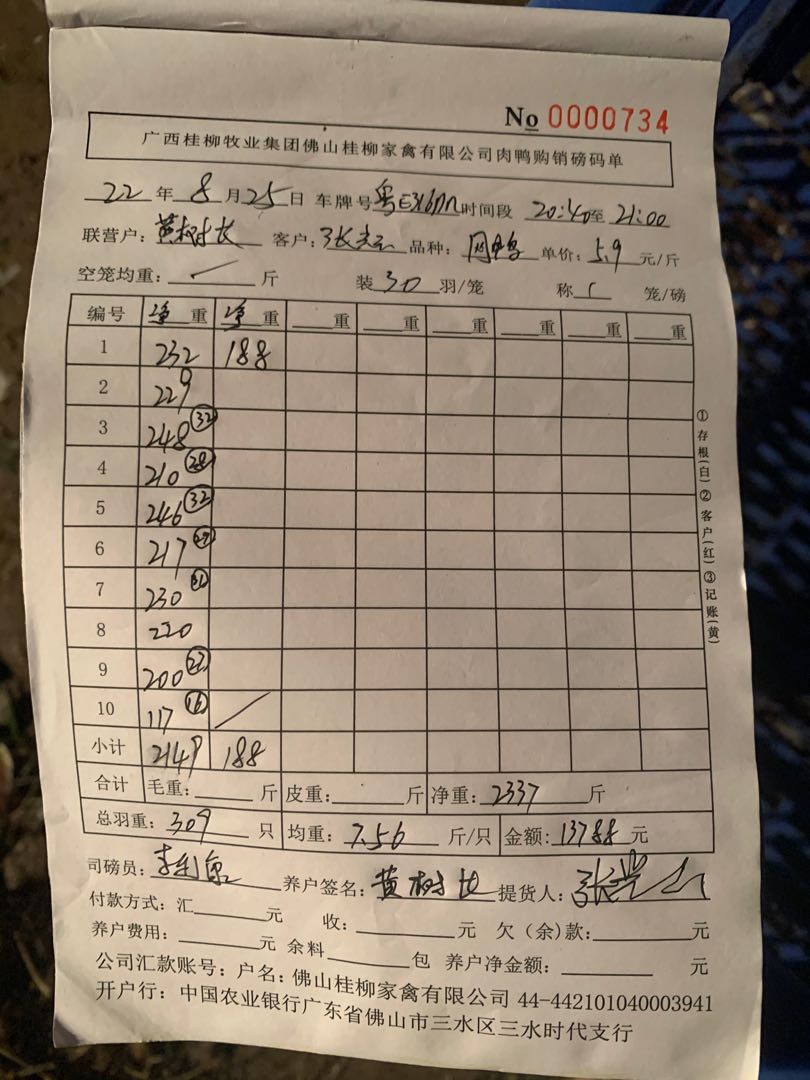 No 0000734
广西桂柳牧业集团佛山桂柳家禽有限公司肉鸭购销磅码单
22年8月25日 车牌号粤E 时间段 20:40至21:00
联营户:黄树长 客户:张 品种: 鸭 单价:5.9元/斤
空笼均重: 斤 装30羽/笼 称1笼/磅
编号 净重 净重 重 重 重 重 重 重
1 232 188
2 229
3 248 32
4 210 28
5 246 32
6 217
7 230
8 220
9 200
10 117 16
小计 2149 188
合计 毛重: 斤 皮重: 斤 净重:2337斤
总羽重:309只 均重:7.56斤/只 金额:13788元
司磅员:李 养户签名:黄树长 提货人:张
付款方式:汇 元 收: 元 欠(余)款: 元
养户费用: 元 余料 包 养户净金额: 元
公司汇款账号:户名:佛山桂柳家禽有限公司 44-442101040003941
开户行:中国农业银行广东省佛山市三水区三水时代支行
①存根(白)②客户(红)③记账(黄)